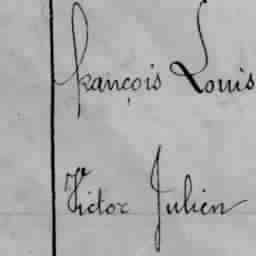 François Louis
Victor Julien